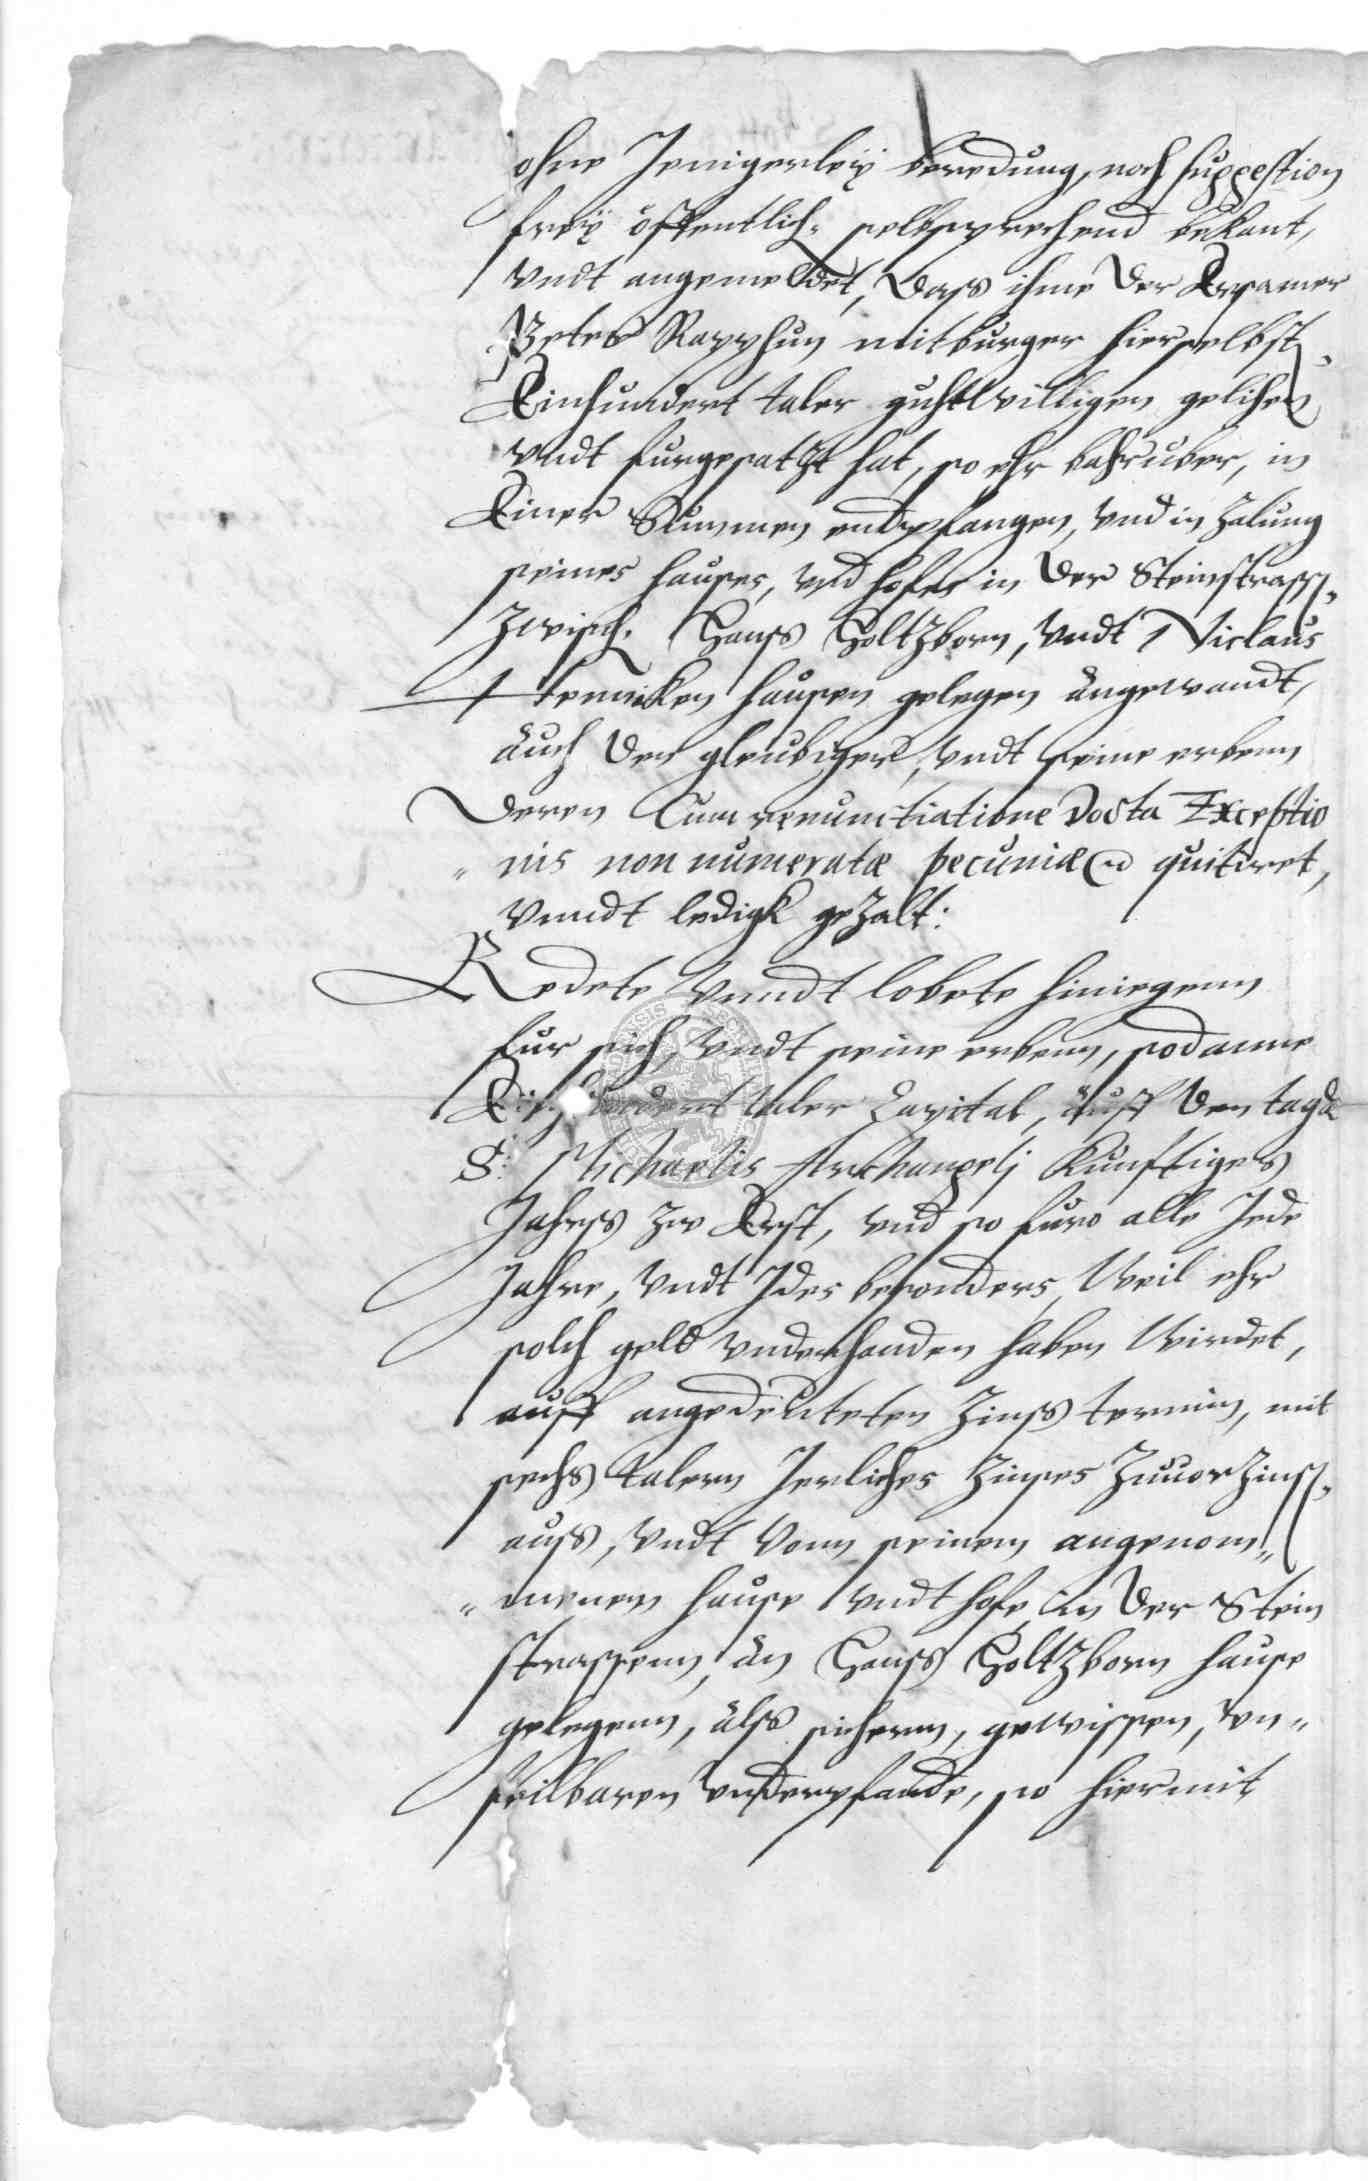 ohne Jenigerleÿ beredung, noch suggestion
freÿ öffentlich, selbsprechend bekant,
vndt angemeldet, Dass ihme der Ersamer
Peter Rapphun mitburger hierselbst
Einhundert taler guhtwilligen gelihen
vndt furgesatzt hat, so ehr bahruber, in
Einer Summen endtpfangen, vnd in Zalung
seines hauses, vnd hofes in der Steinstrass,
Zwisch. Hanss Holtzborn, vndt Niclaus
hausen gelegen angewandt,
auch den gleubiger, vndt seine erbenn
deren Cum renuntiatione Docta Exceptio
nis non numeratæ pecuniæ quitiret,
vnndt ledigk gezalt:
Redete vnndt lobete hiniegenn
fur sich, vndt seine erbenn, sodanne
Einhundert taler Capital, auff den tagk
S: Michaelis Archangelj Kunftiges
Jahrss zw Erst, vnd so furo alle Jede
Jahre, vndt Jdes besonders, Weil ehr
solch geld vnderhanden haben Wirdet,
auff angedeuteten Zinss termin, mit
sechs talern Jerliches Zinses Zuuorzinss,
auss, vndt vonn seinem angenom„
„menen hause vndt hofe in der Stein
strassenn, an Hanss Holtzborn hause
gelegenn, alss sichernn, gewissen, vn„
feilbaren vnderpfande, so hiermit